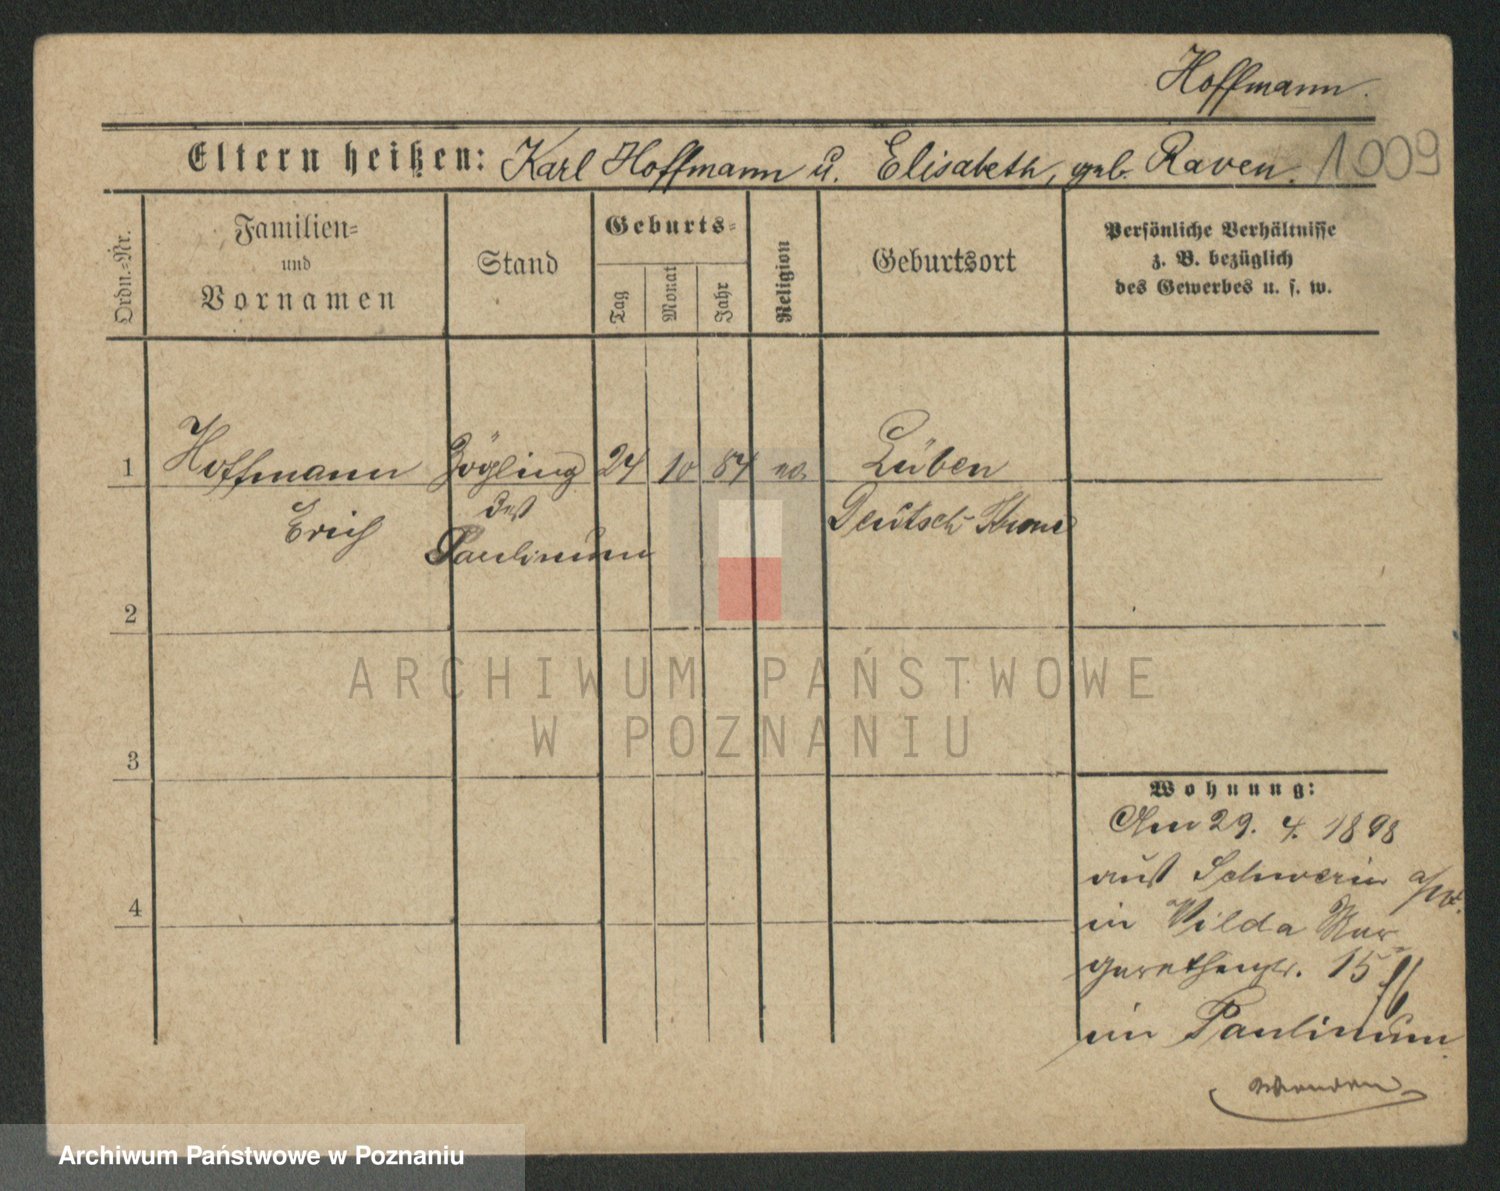 Hoffmann.
Eltern heißen: Karl Hoffmann u. Elisabeth, geb. Raven.
1009
Ordn.-Nr.
Familien-
und
Vornamen
Stand
Geburts-
Tag
Monat
Jahr
Religion
Geburtsort
Persönliche Verhältnisse
z. B. bezüglich
des Gewerbes u. s. w.
1
Hoffmann
Erich
Zögling
des
Paulinum
24
10
84
ev.
Lüben
Deutsch-Krone
2
3
4
Wohnung:
Am 29. 4. 1898
aus Schwerin a/W.
in Wilda Mar-
garethenstr. 15
im Paulinum.
wenden
ARCHIWUM PAŃSTWOWE
W POZNANIU
Archiwum Państwowe w Poznaniu